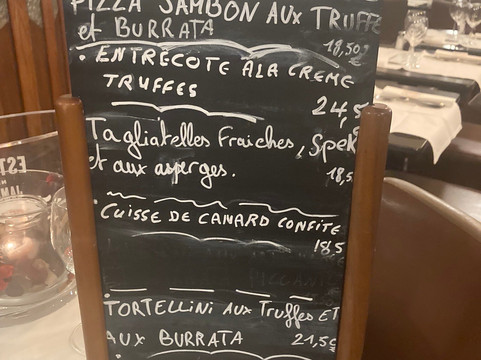 PIZZA JAMBON AUX TRUFFE
et BURRATA
18,50
€
• ENTRÉCOTE A LA CREME
TRUFFES
24,5
Tagliatelles Fraiches, Spek
et aux asperges.
18,5
• CUISSE DE CANARD CONFITE
185
PICCANTE
TORTELLINI AUX Truffes ET
AUX BURRATA 21,5€